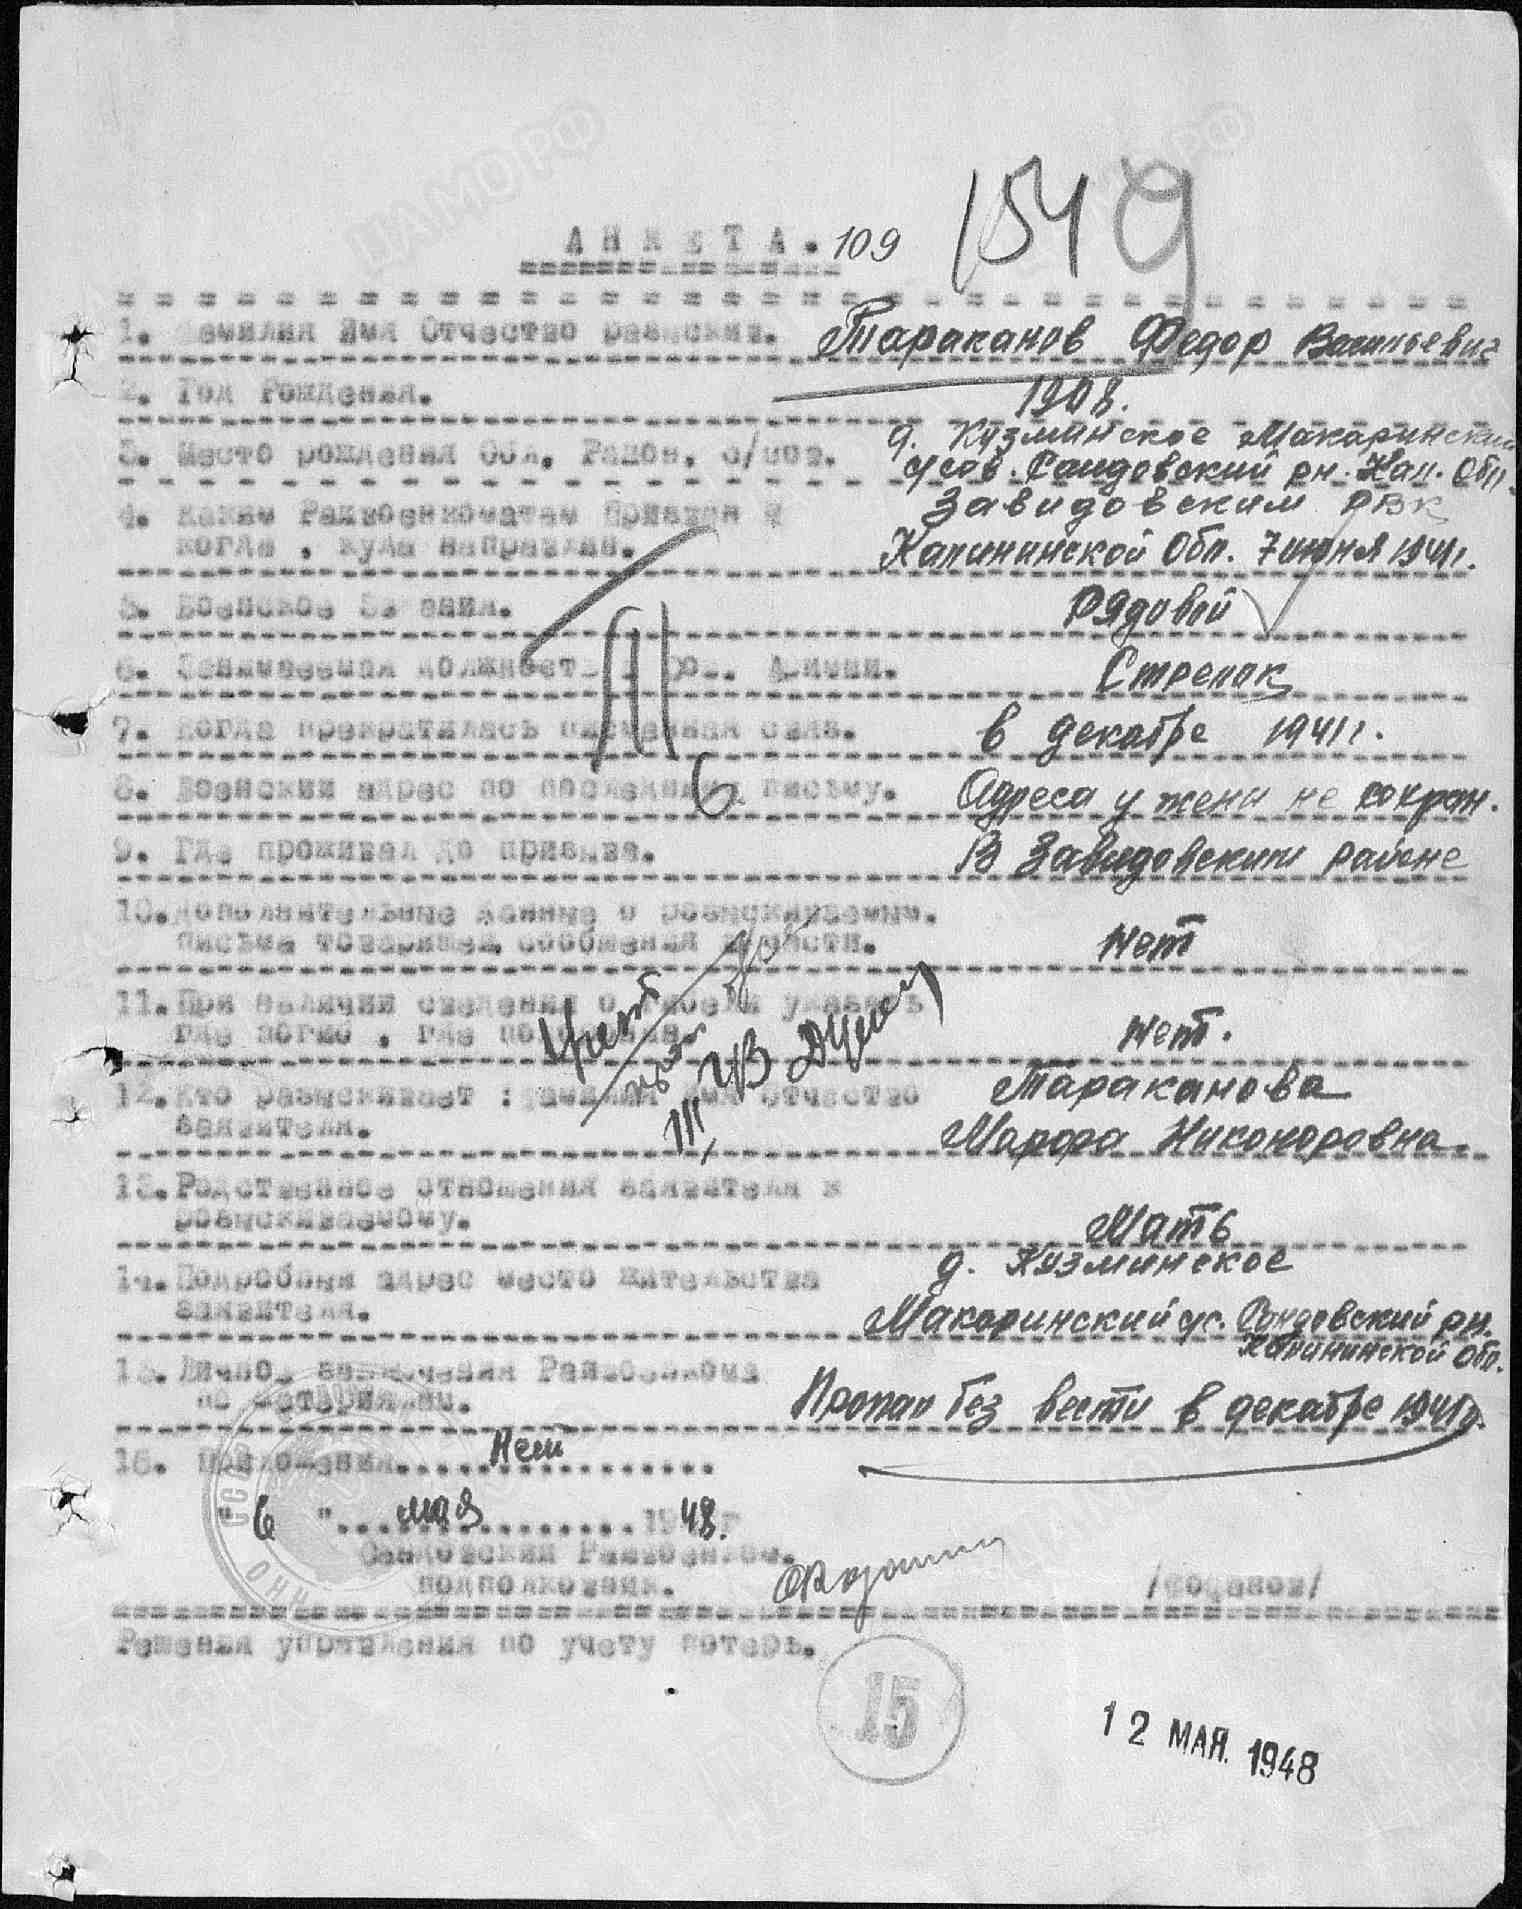 АНКЕТА. 109 1549
1. Фамилия Имя Отчество розыскив. Тараканов Федор Васильевич
2. Год Рождения. 1908.
3. Место рождения Обл. Район. с/сов. д. Кузминское Макаринский
с/сов. Сандовский рн. Кал. Обл.
4. Каким Райвоенкоматам Призван и Завидовским РВК
когда, куда направлен. Калининской Обл. 7 июня 1941г.
5. Воинское Звание. Рядовой
6. Занимаемая должность в Кр. Армии. Стрелок
7. Когда прекратилась письменная связ. в декабре 1941г.
8. Воинский адрес по последнему письму. Адреса у жены не сохран.
9. Где проживал до призыва. В Завидовским районе
10. Дополнительные данные о розыскиваемом.
письма товарищей, сообщения в/части. Нет
11. При наличии сведений о гибели указать
где погиб, где похоронен. Нет.
12. Кто розыскивает: фамилия имя отчество Тараканова
заявителя. Марфа Никоноровна.
13. Родственное отношения заявителя к
розыскиваемому. Мать
14. Подробный адрес место жительства д. Кузминское
заявителя. Макаринский с/с. Сандовский рн.
Калининской Обл.
15. Личное заключения Райвоенкома
по материалам. Пропал без вести в декабре 1941г.
16. Приложения. Нет
" 6 " мая 1948 г
Сандовский Райвоенком.
подполковник.
Решения управления по учету потерь.
15
12 МАЯ 1948